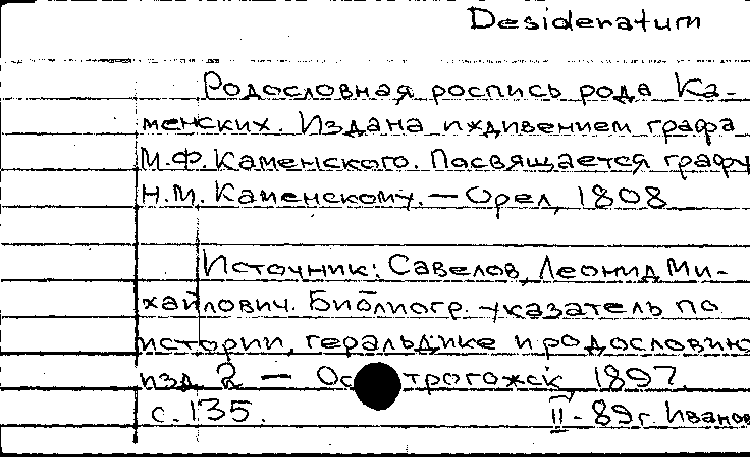 Desideratum
Родословная роспись рода Ка-
менских. Издана иждивением графа
М.Ф. Каменского. Посвящается графу
Н.М. Каменскому. — Орел, 1808
Источник: Савелов, Леонид Ми-
хайлович. Библиогр. указатель по
истории, геральдике и родословию
изд. 2 — Острогожск, 1897.
с. 135.
II - 89 г. Иванов